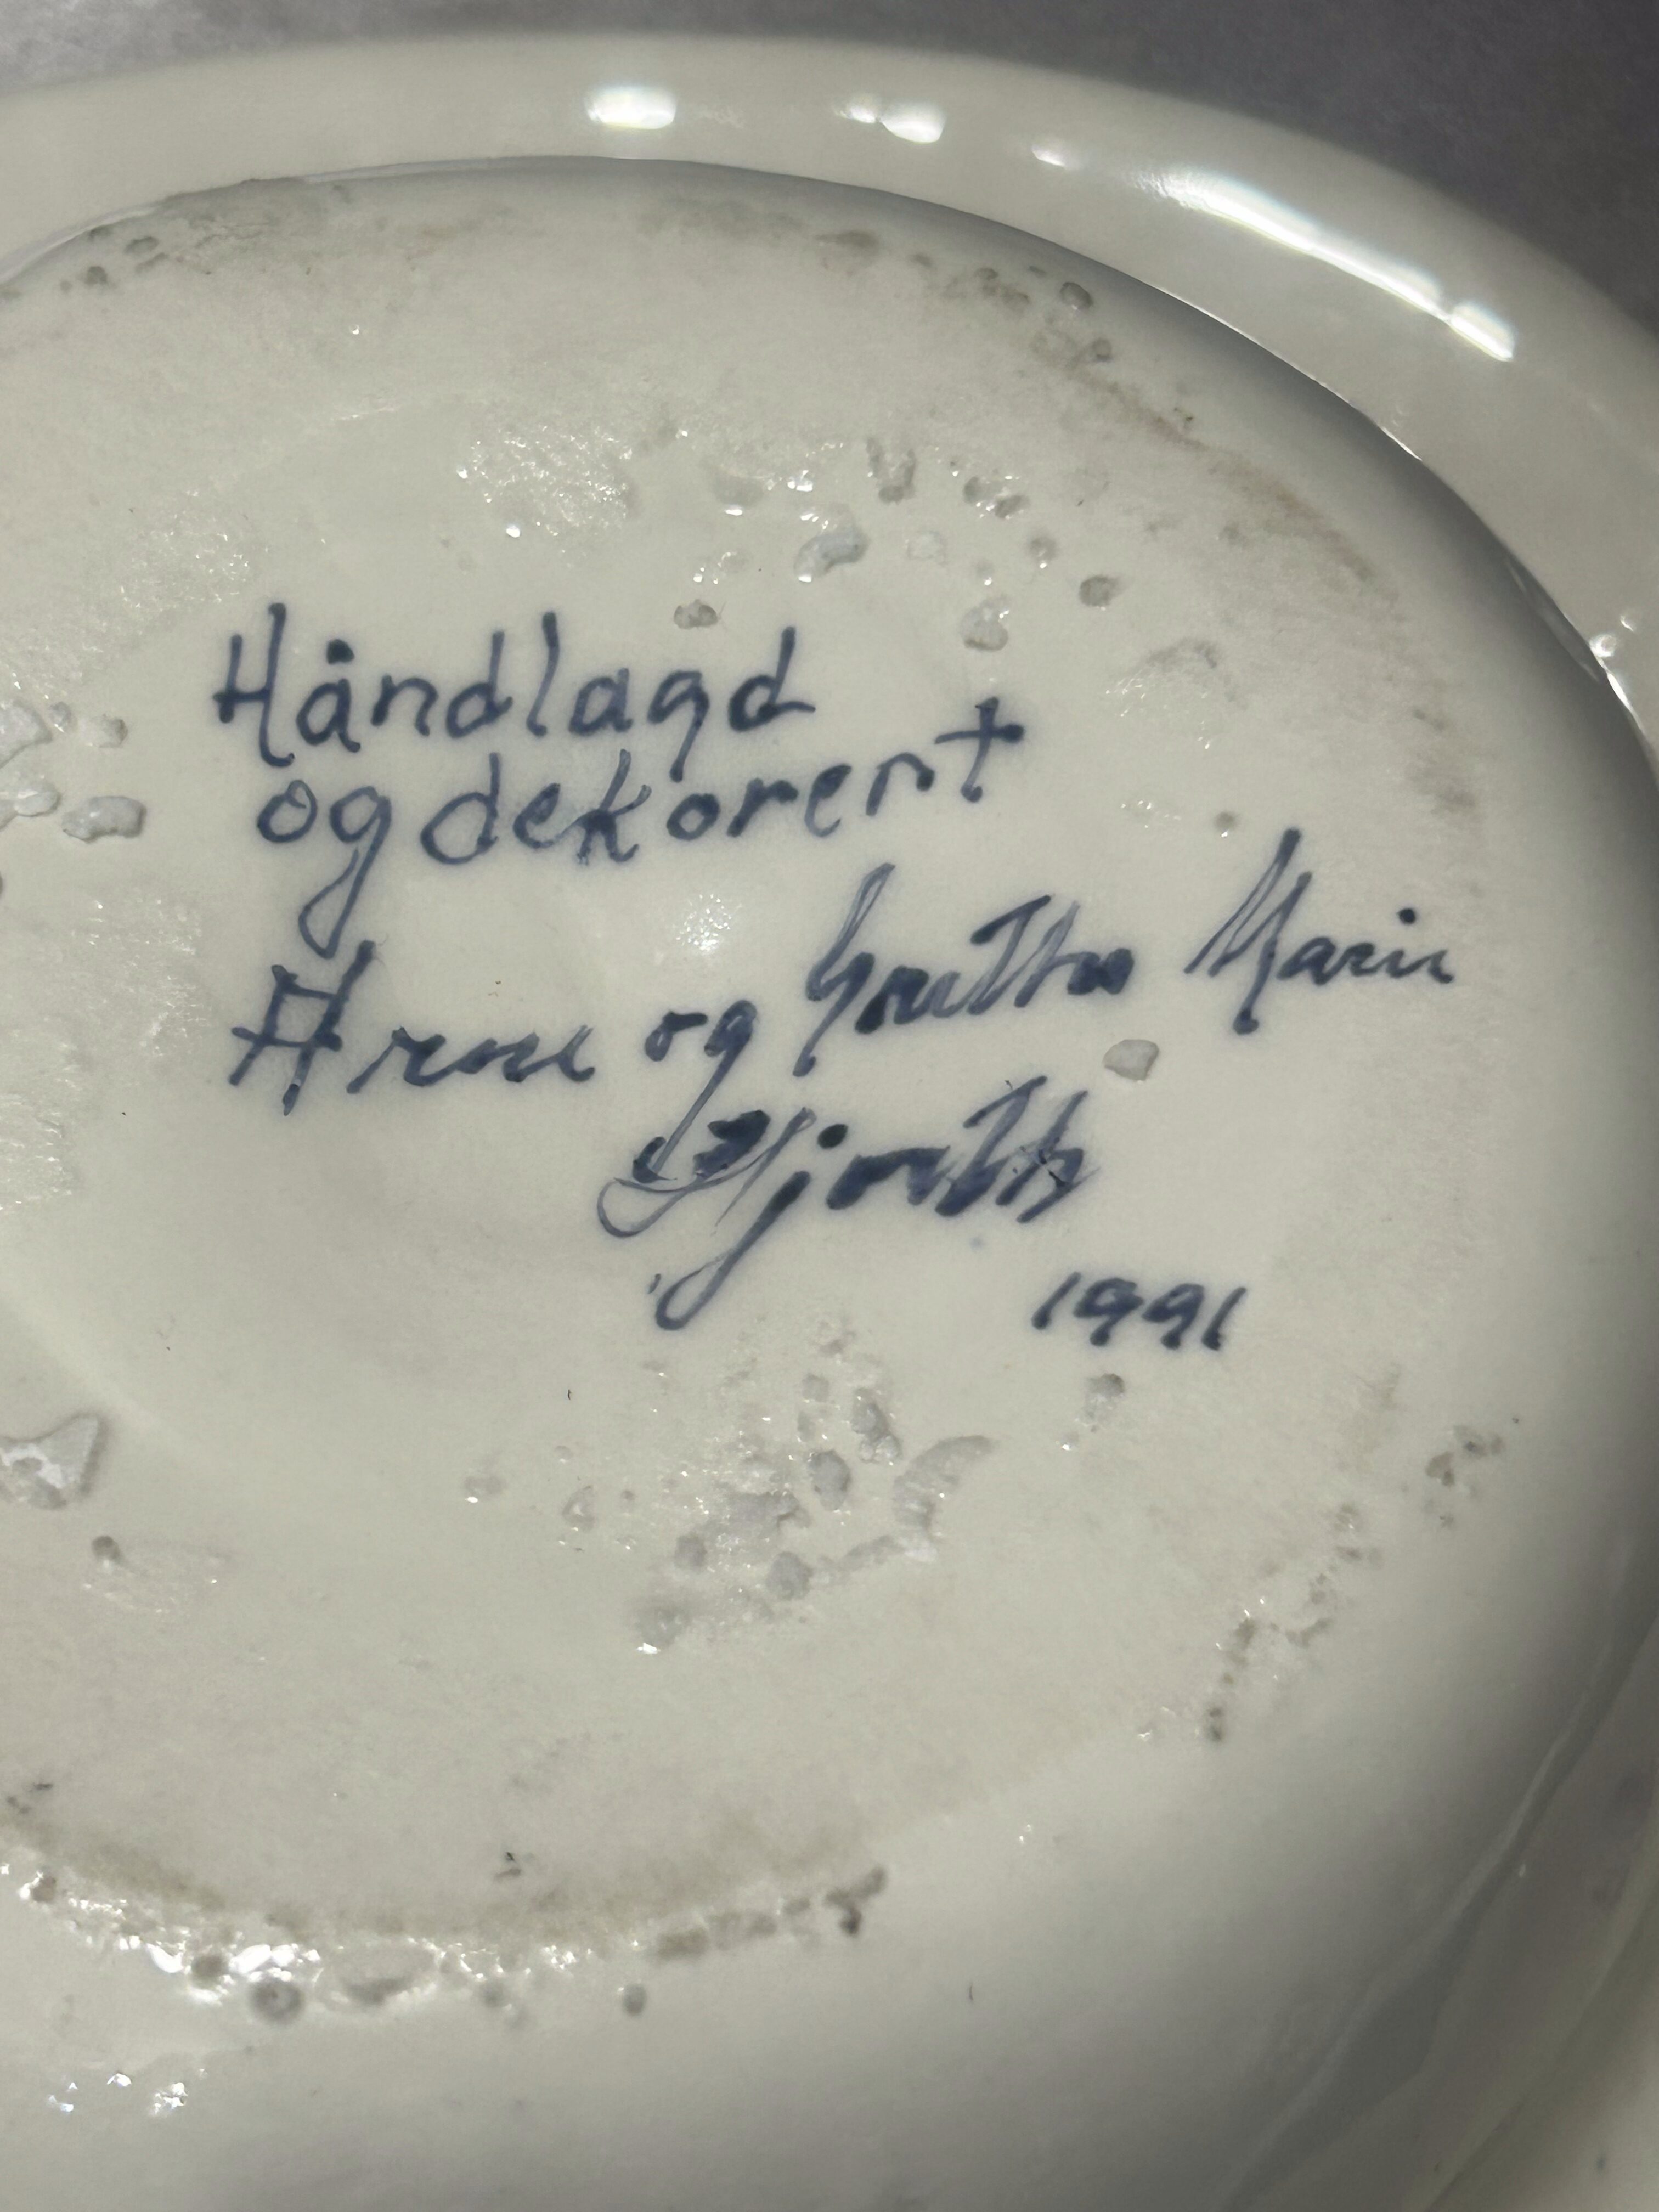 Håndlagd
og dekorert
Arne og Grethe Marie
Hjorth
1991